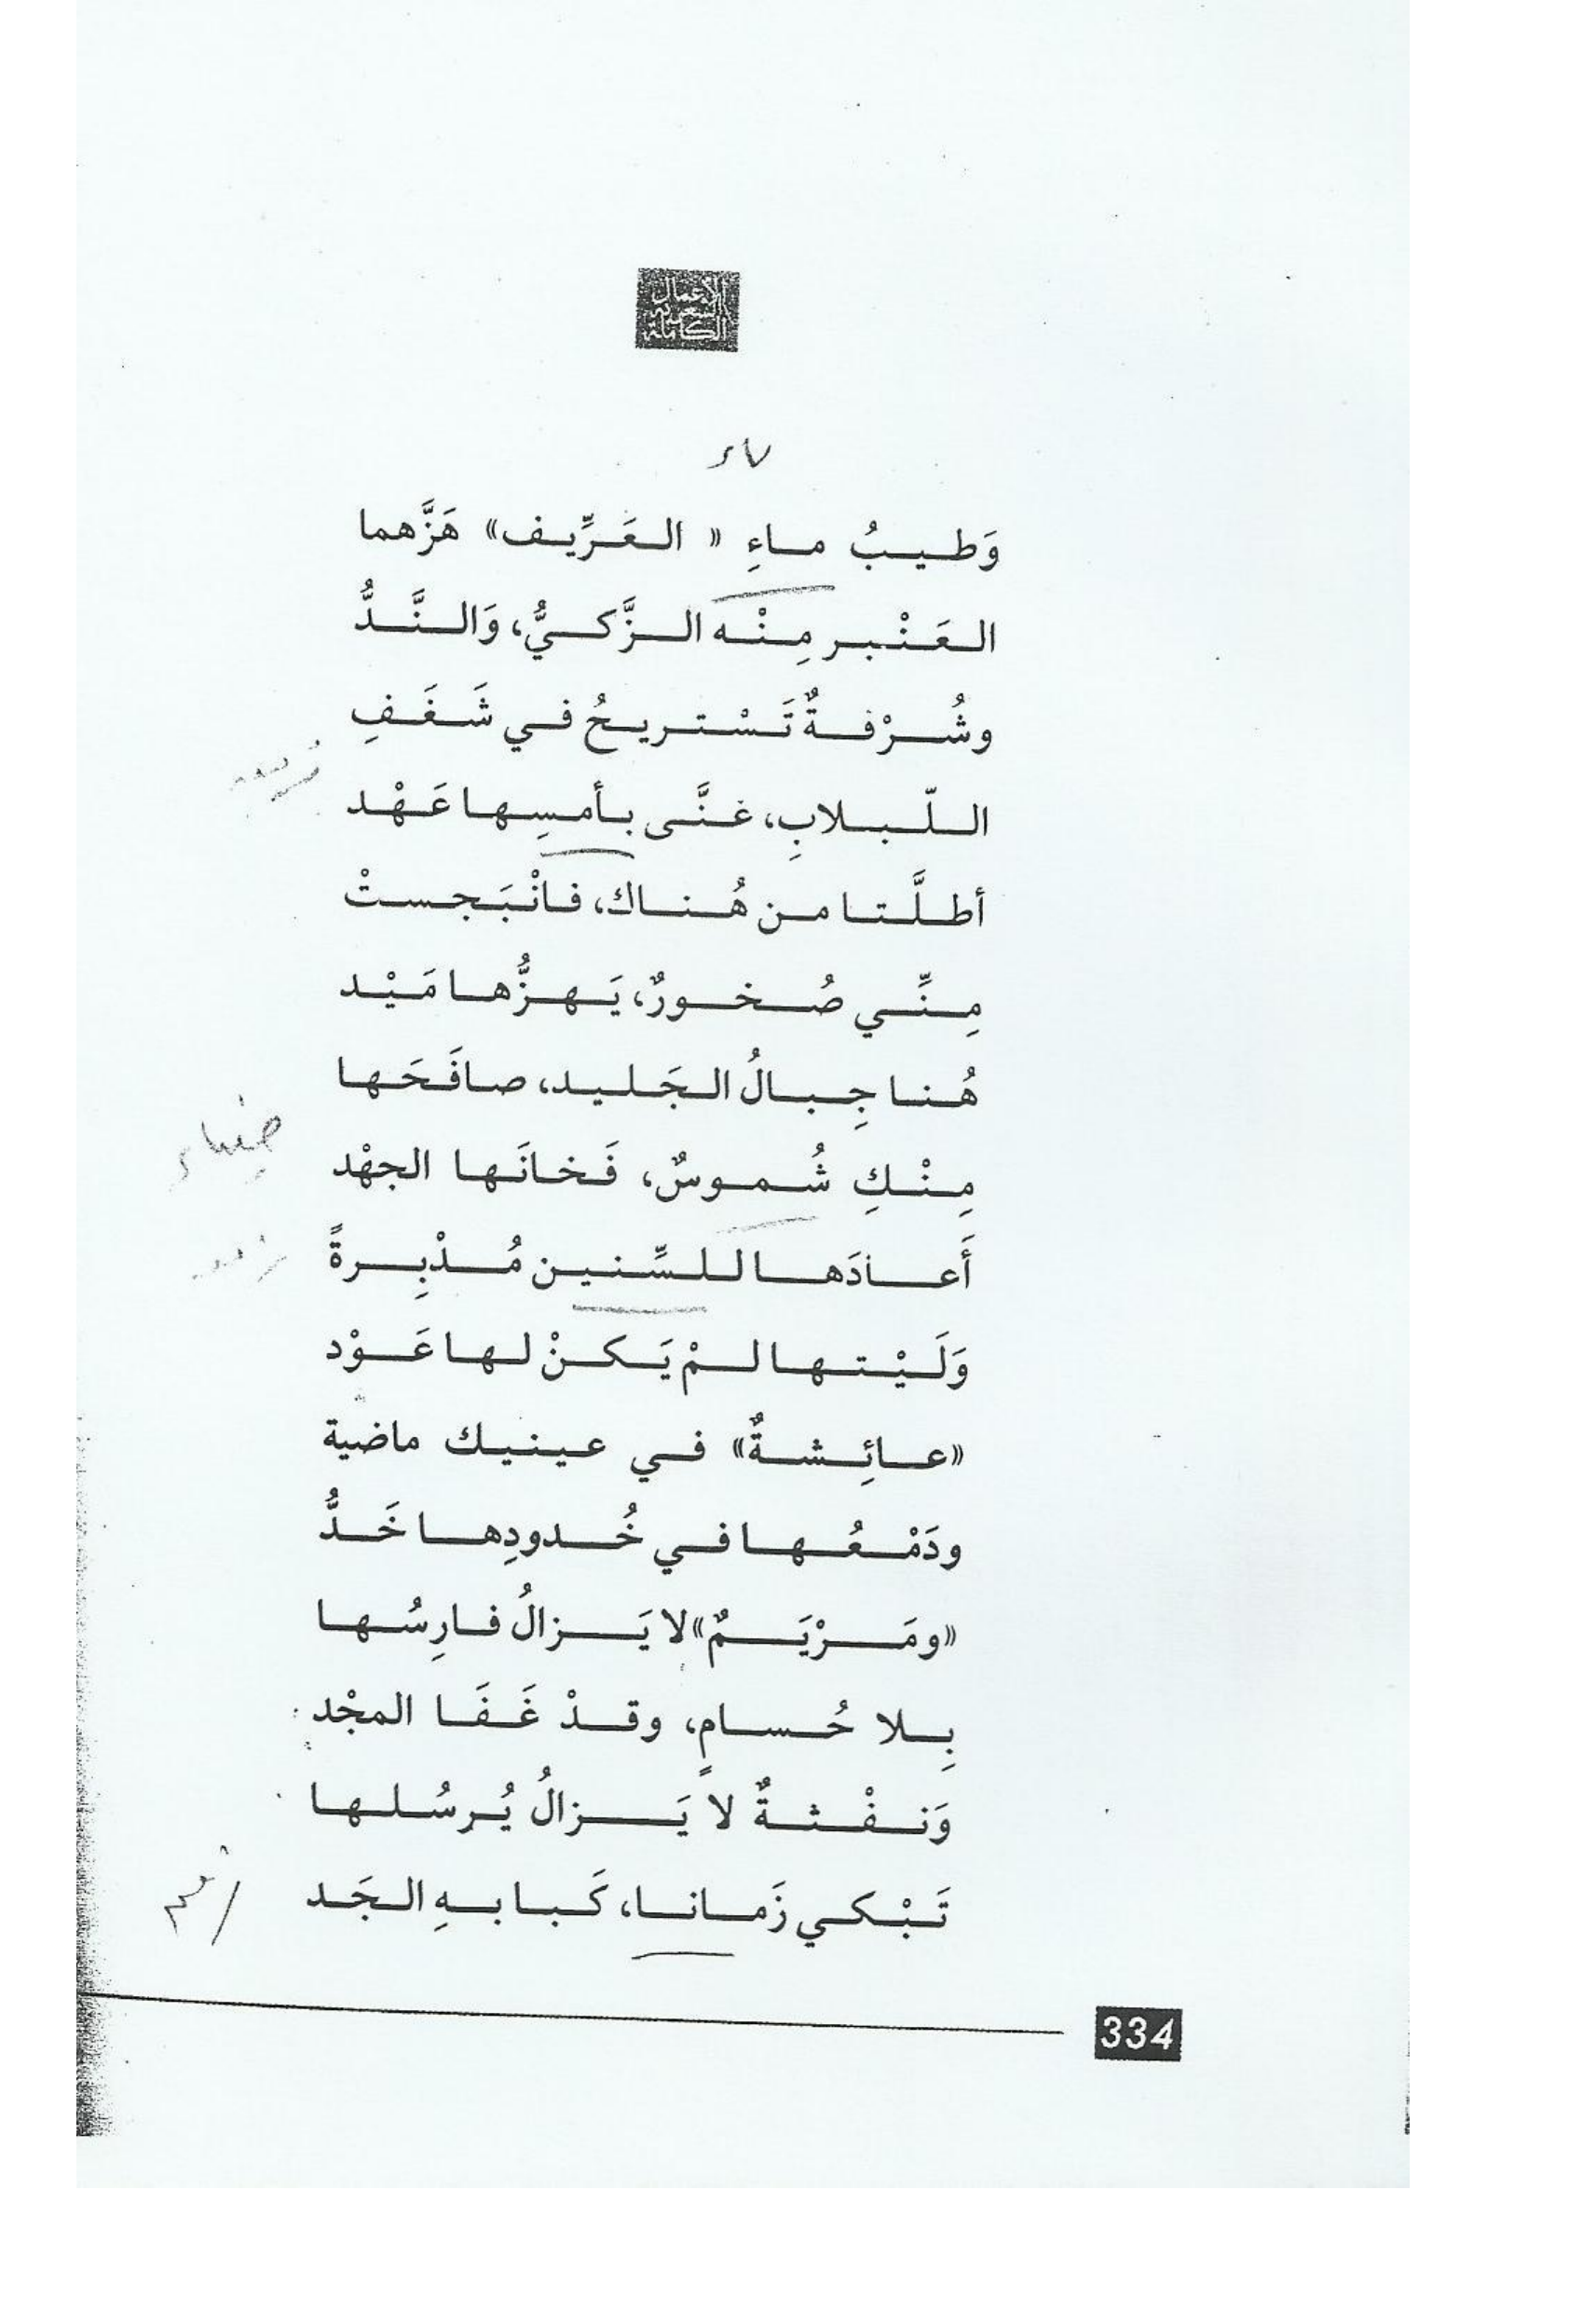 الأعمال
الشعرية
الكاملة
وَطيبُ ماءِ « العَرِّيف» هَزَّهما
العَنْبر مِنْه الزَّكيُّ، وَالنَّدُّ
وشُرْفةٌ تَسْتريحُ في شَغَفِ
اللّبلابِ، غنَّى بأمسِها عَهْد
أطلَّتا من هُناك، فانْبَجستْ
مِنِّي صُخورٌ، يَهزُّها مَيْد
هُنا جِبالُ الجَليد، صافَحَها
مِنْكِ شُموسٌ، فَخانَها الجهْد
أَعادَها للسِّنين مُدْبِرةً
وَلَيْتها لمْ يَكنْ لها عَوْد
«عائِشةٌ» في عينيك ماضية
ودَمْعُها في خُدودِها خَدُّ
«ومَرْيَمٌ» لا يَزالُ فارِسُها
بِلا حُسامٍ، وقدْ غَفَا المجْد
وَنفْثةٌ لا يَزالُ يُرسُلها
تَبْكي زَمانا، كَبا بهِ الجَد
334